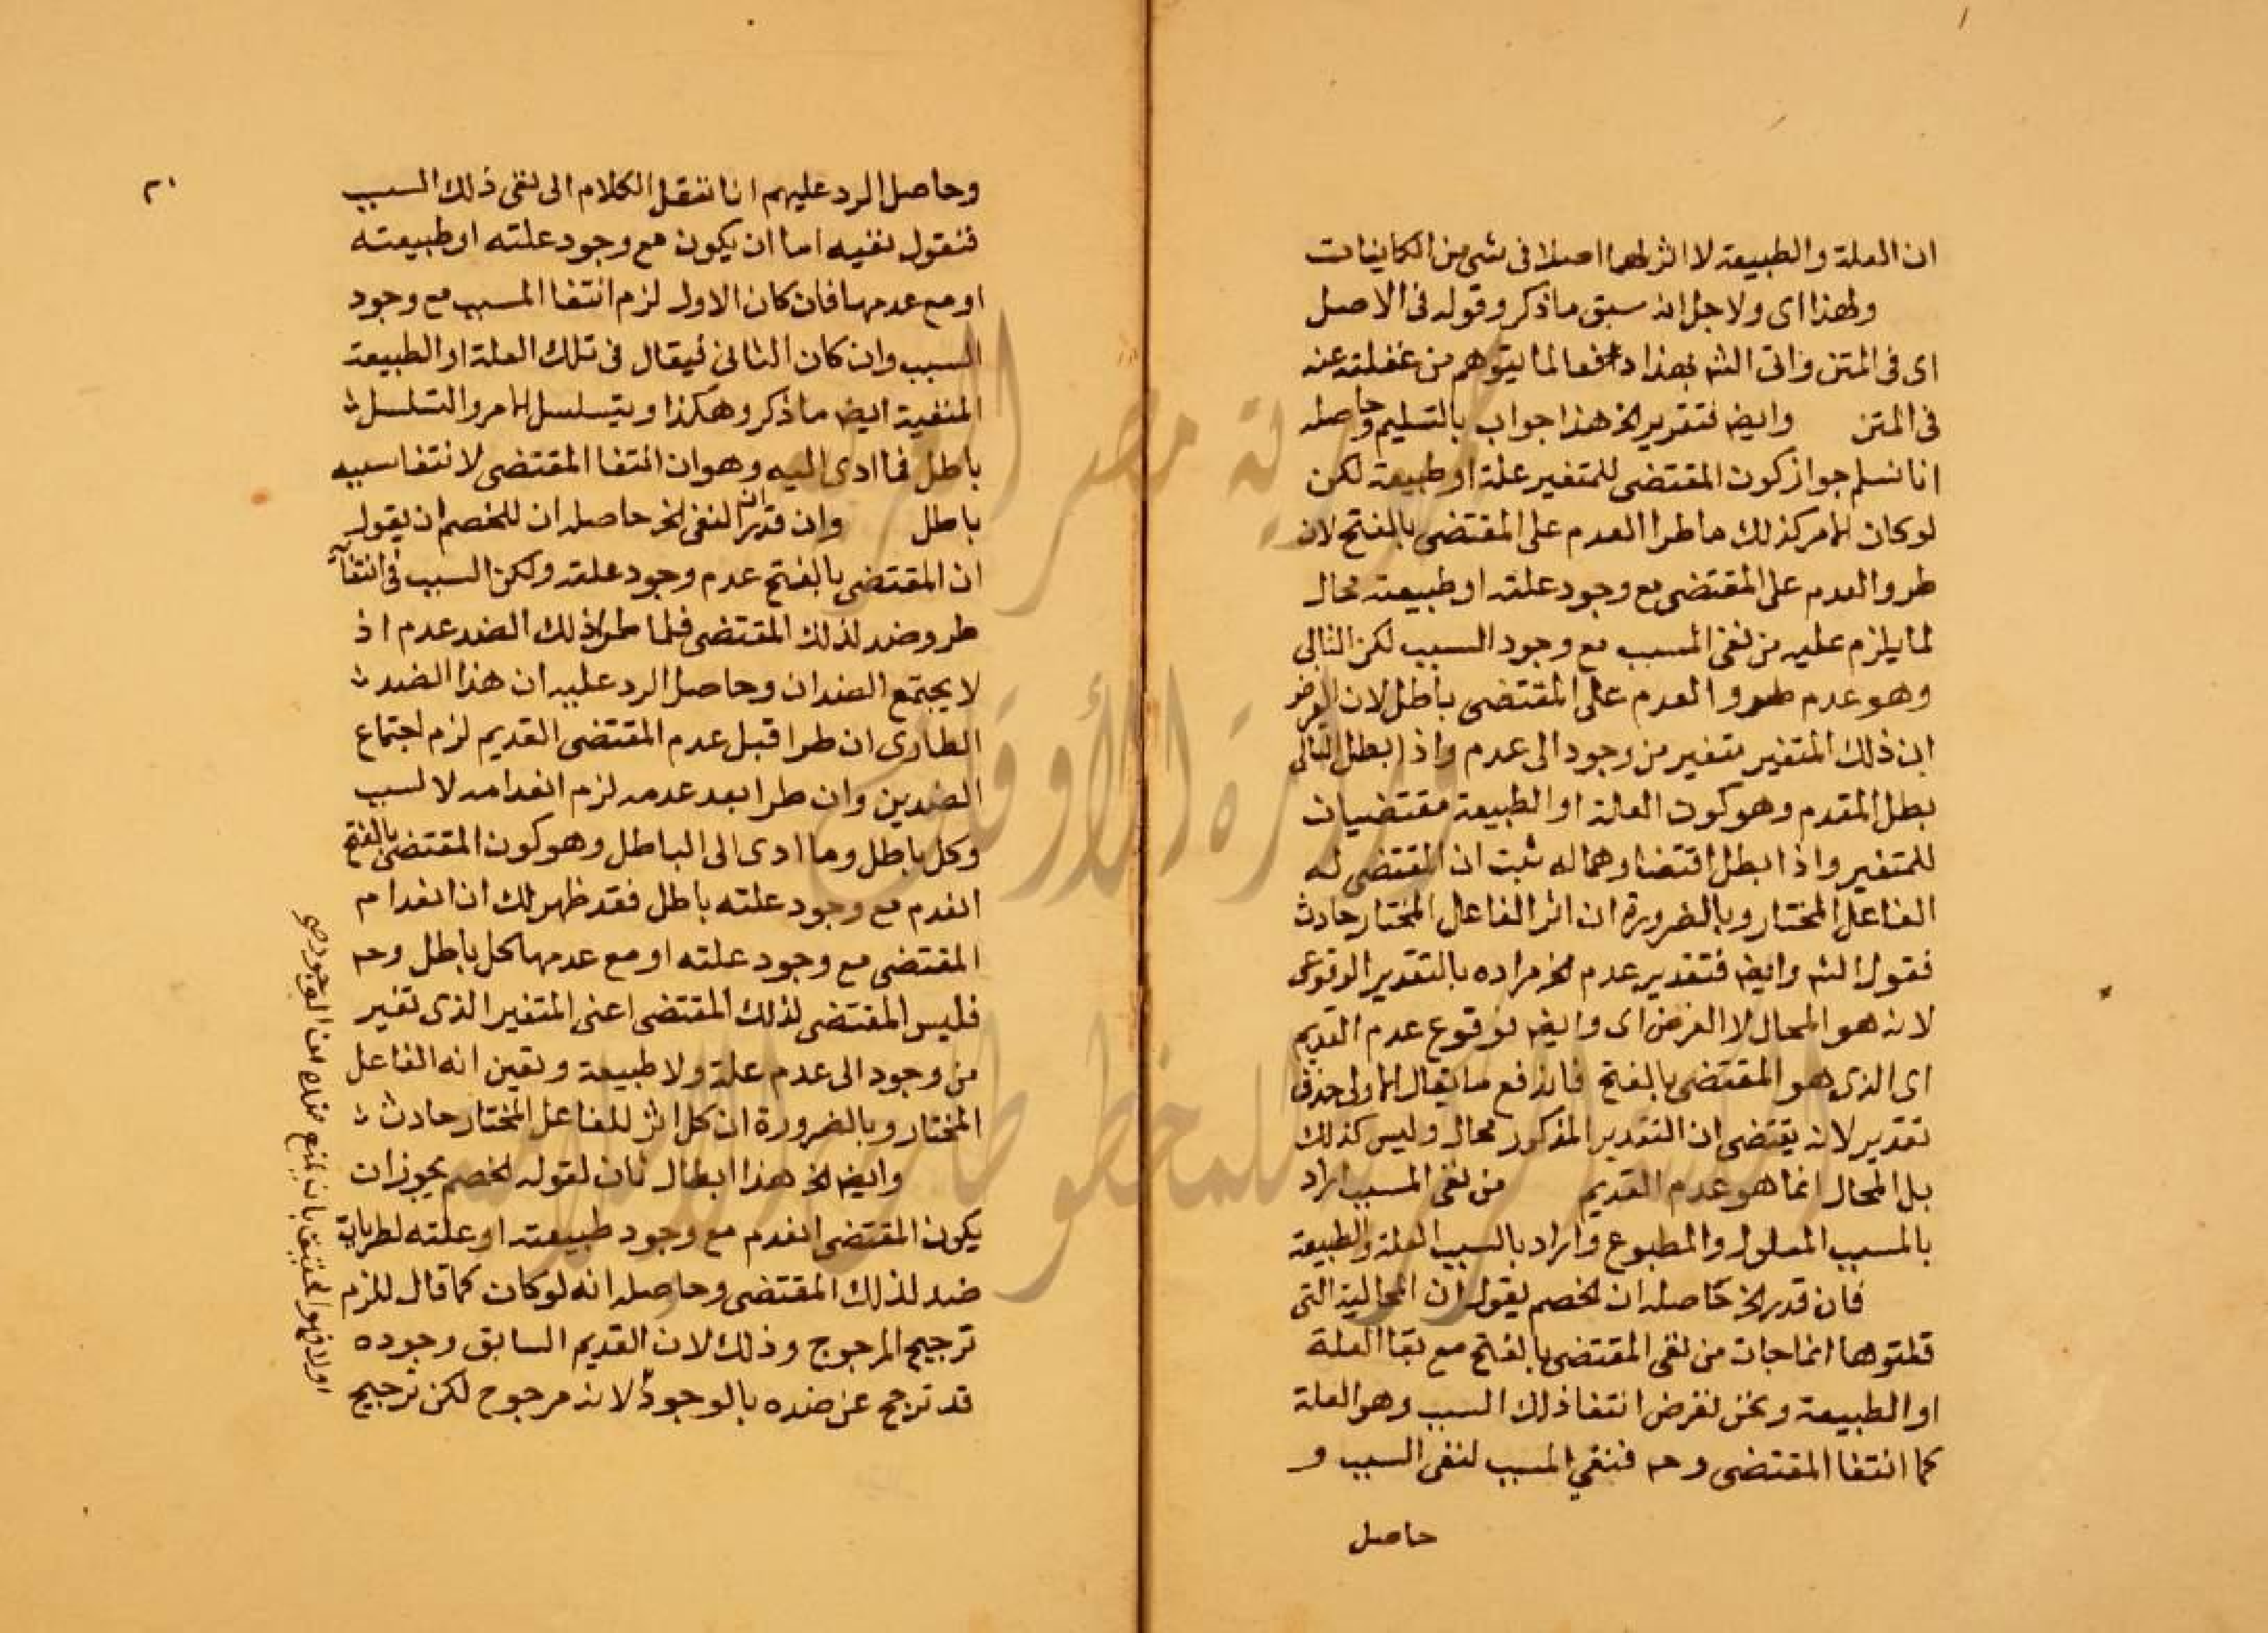 ان العلة والطبيعة لا اثر لهما اصلا فى شى من الكاينات
ولهذا اى ولاجل انه سبق ما ذكر وقوله فى الاصل
اى فى المتن واتى الشه بهذا دفعا لما يتوهم من غفلته عنه
فى المتن وايضه فتقرير الخ هذا جواب بالتسليم وحاصله
انا نسلم جواز كون المقتضى للمتغير علة او طبيعة لكن
لو كان الامر كذلك ما طرا العدم على المقتضى بالفتح لان
طرو العدم على المقتضى مع وجود علته او طبيعته محال
لما يلزم عليه من نفى المسبب مع وجود السبب لكن التالى
وهو عدم طرو العدم على المقتضى باطل لان الفرض
ان ذلك المتغير متغير من وجود الى عدم واذا بطل التالى
بطل المقدم وهو كون العلة او الطبيعة مقتضيان
للمتغير واذا بطل اقتضاوهما له ثبت ان المقتضى له
الفاعل المختار وبالضرورة ان اثر الفاعل المختار حادث
فقول الشه وايضه فتقدير عدم الخ مراده بالتقدير الوقوعى
لانه هو المحال لا الفرض اى وايضه فوقوع عدم القديم
اى الذى هو المقتضى بالفتح فاندفع ما يقال الاولى حذف
تقدير لانه يقتضى ان التقدير المذكور محال وليس كذلك
بل المحال انما هو عدم القديم من نفى المسبب اراد
بالمسبب المعلول والمطبوع واراد بالسبب العلة والطبيعة
فان قدر الخ حاصله ان الخصم يقول ان المحالية التى
قلتوها انما جات من نفى المقتضى بالفتح مع بقا العلة
او الطبيعة ونحن نفرض انتفا ذلك السبب وهو العلة
كما انتفا المقتضى وحه فنفي المسبب لنفى السبب و
حاصل
٢٠
وحاصل الرد عليهم انا ننقل الكلام الى نفى ذلك السبب
فنقول نفيه اما ان يكون مع وجود علته او طبيعته
او مع عدمها فان كان الاول لزم انتفا المسبب مع وجود
السبب وان كان الثانى فيقال فى تلك العلة او الطبيعة
المنفية ايضه ما ذكر وهكذا ويتسلسل الامر والتسلسل
باطل فما ادى اليه وهو ان انتفا المقتضى لانتفا سببه
باطل وان قدر ان النفى الخ حاصله ان للخصم ان يقول
ان المقتضى بالفتح عدم وجود علته ولكن السبب فى انتفآئه
طرو ضد لذلك المقتضى فلما طرا ذلك الضد عدم اذ
لا يجتمع الضدان وحاصل الرد عليه ان هذا الضد
الطارى ان طرا قبل عدم المقتضى القديم لزم اجتماع
الضدين وان طرا بعد عدمه لزم انعدامه لا لسبب
وكل باطل وما ادى الى الباطل وهو كون المقتضى بالفتح
انعدم مع وجود علته باطل فقد ظهر لك ان انعدام
المقتضى مع وجود علته او مع عدمها كل باطل وحه
فليس المقتضى لذلك المقتضى اعنى المتغير الذى تغير
من وجود الى عدم علة ولا طبيعة وتعين انه الفاعل
المختار وبالضرورة ان كل اثر للفاعل المختار حادث
وايضه الخ هذا ابطال ثان لقوله الخصم يجوز ان
يكون المقتضى انعدم مع وجود طبيعته او علته لطريان
ضد لذلك المقتضى وحاصله انه لو كان كما قال للزم
ترجيح المرجوح وذلك لان القديم السابق وجوده
قد ترجح عن ضده بالوجود لانه مرجوح لكن ترجيح